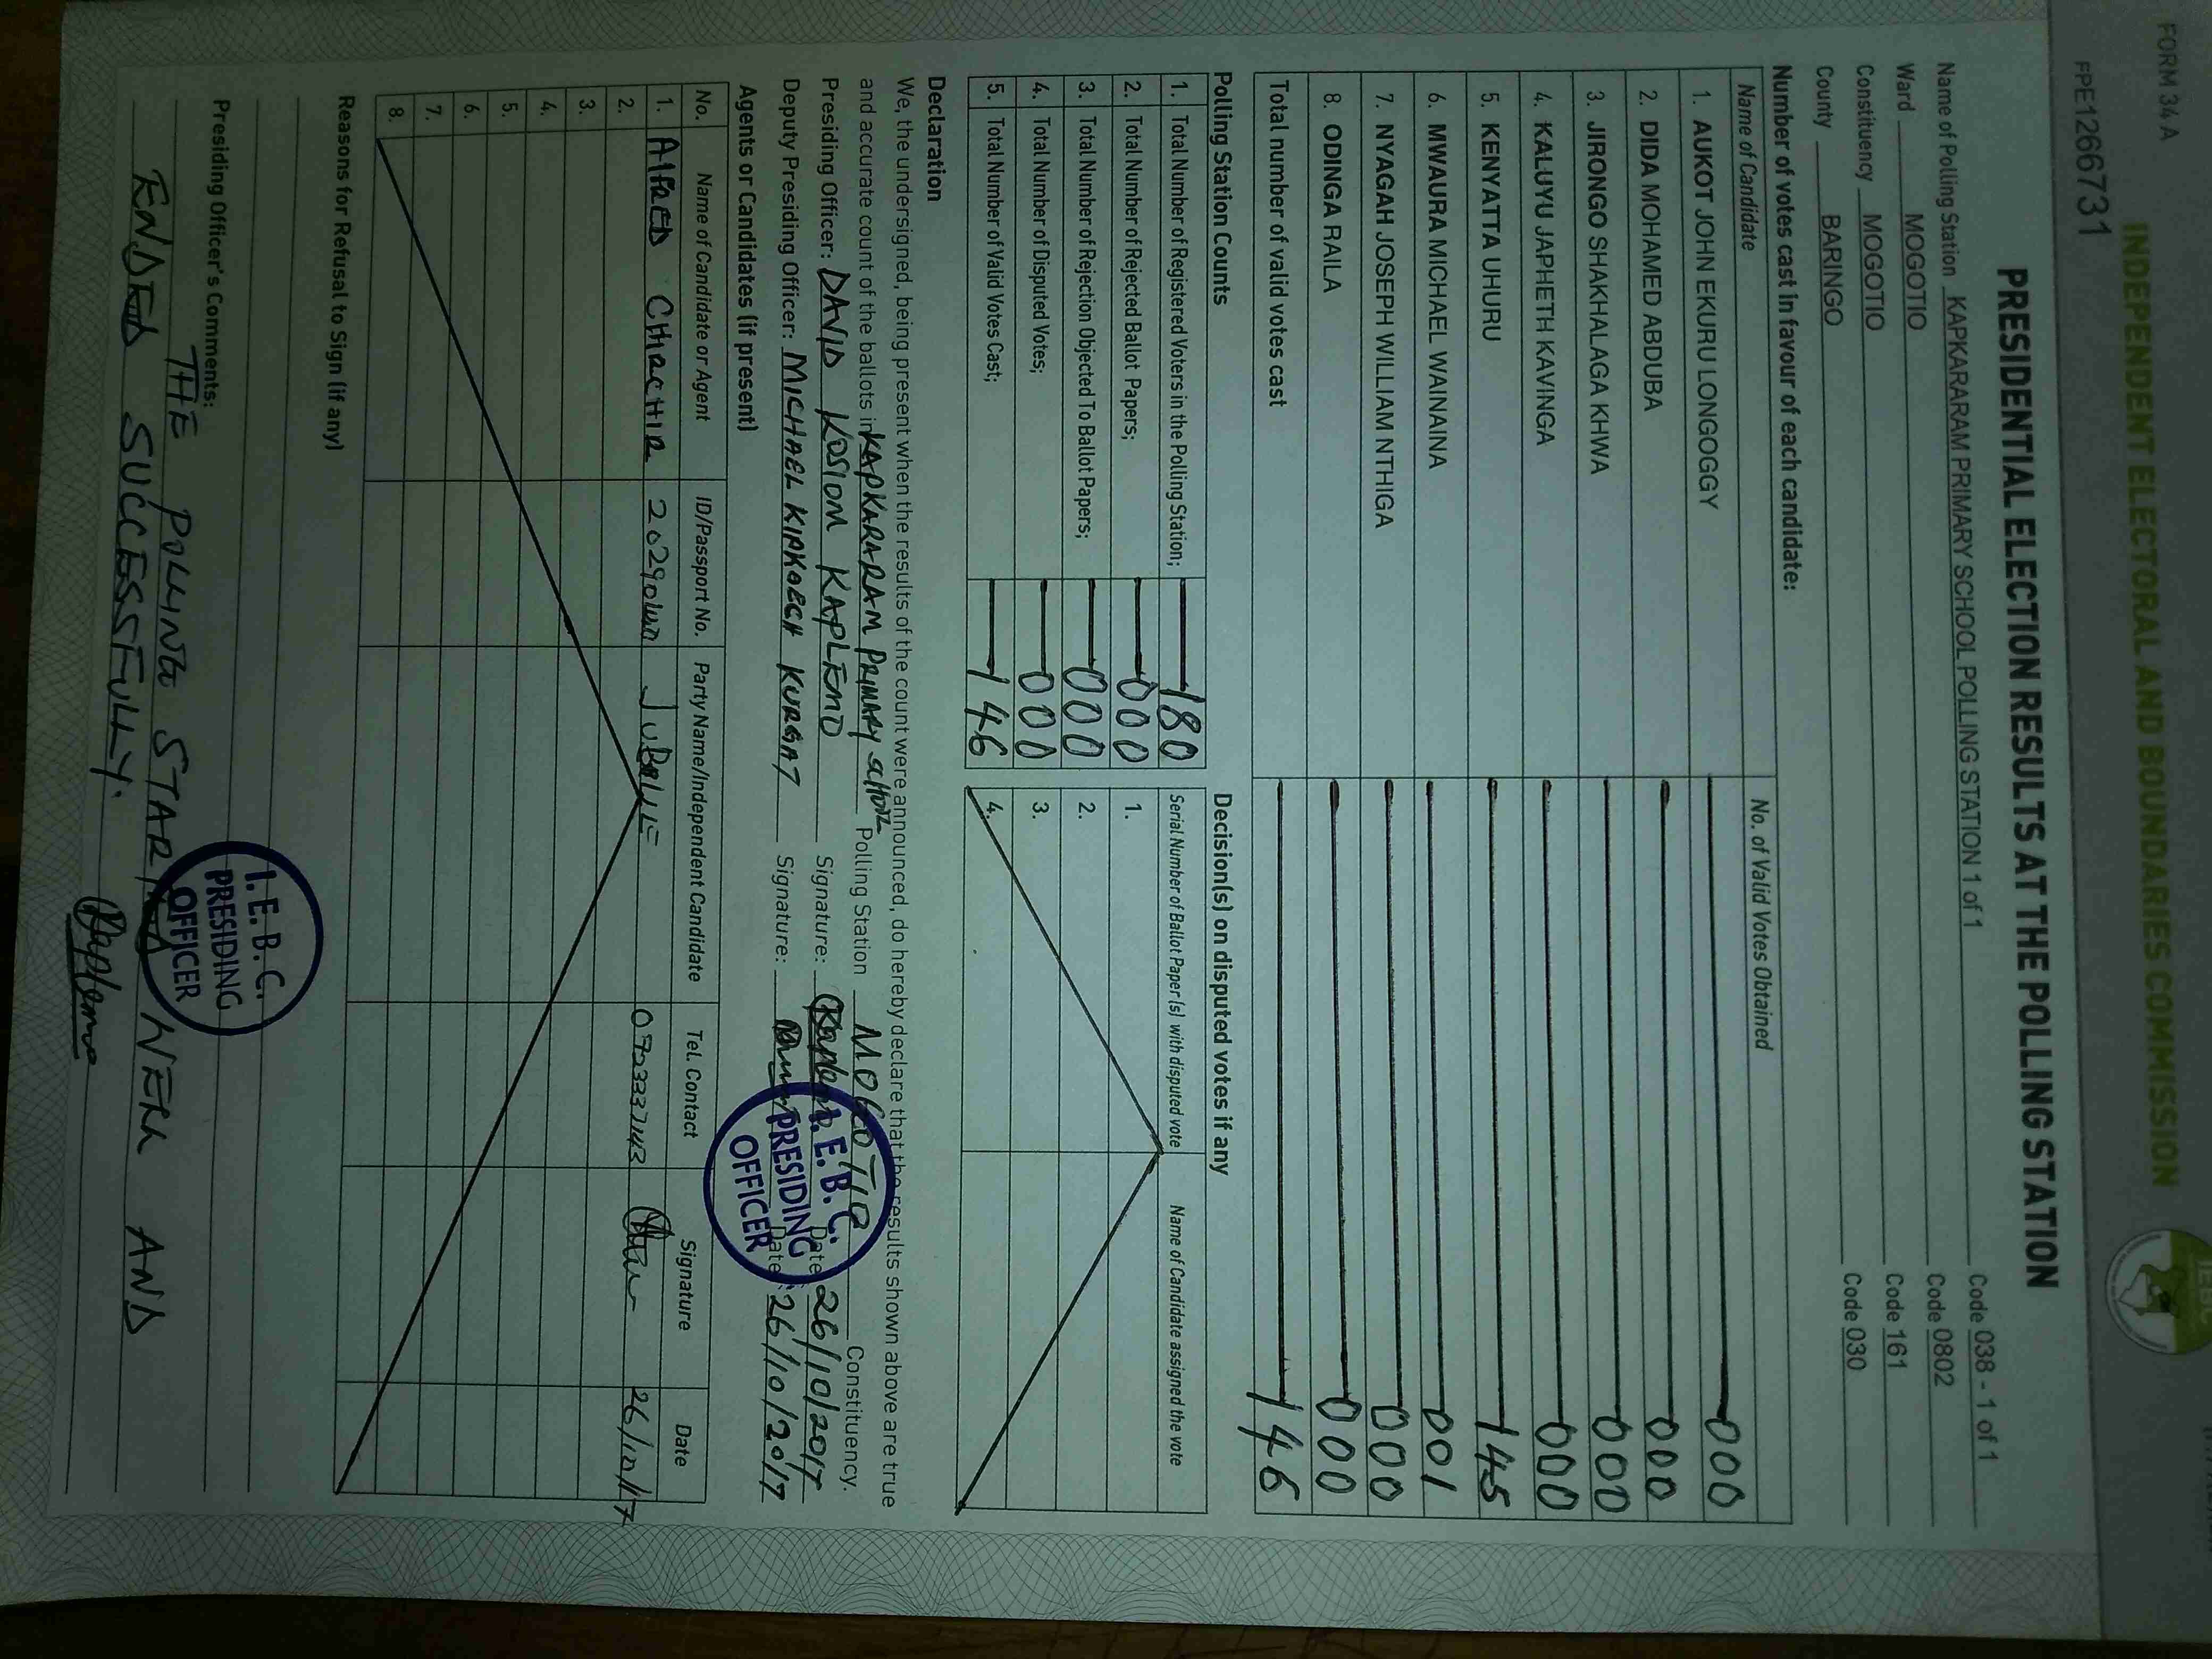 FORM 34 A
INDEPENDENT ELECTORAL AND BOUNDARIES COMMISSION
FPE1266731
PRESIDENTIAL ELECTION RESULTS AT THE POLLING STATION
Name of Polling Station KAPKARARAM PRIMARY SCHOOL POLLING STATION 1 of 1 Code 038 - 1 of 1
Ward MOGOTIO Code 0802
Constituency MOGOTIO Code 161
County BARINGO Code 030
Number of votes cast in favour of each candidate:
Name of Candidate No. of Valid Votes Obtained
1. AUKOT JOHN EKURU LONGOGGY 000
2. DIDA MOHAMED ABDUBA 000
3. JIRONGO SHAKHALAGA KHWA 000
4. KALUYU JAPHETH KAVINGA 000
5. KENYATTA UHURU 145
6. MWAURA MICHAEL WAINAINA 001
7. NYAGAH JOSEPH WILLIAM NTHIGA 000
8. ODINGA RAILA 000
Total number of valid votes cast 146
Polling Station Counts Decision(s) on disputed votes if any
1. Total Number of Registered Voters in the Polling Station; 180 Serial Number of Ballot Paper (s) with disputed vote Name of Candidate assigned the vote
2. Total Number of Rejected Ballot Papers; 000 1.
3. Total Number of Rejection Objected To Ballot Papers; 000 2.
4. Total Number of Disputed Votes; 000 3.
5. Total Number of Valid Votes Cast; 146 4.
Declaration
We, the undersigned, being present when the results of the count were announced, do hereby declare that the results shown above are true
and accurate count of the ballots in KAPKARARAM PRIMARY SCHOOL Polling Station MOGOTIO Constituency.
Presiding Officer: DAVID KOSIOM KAPLEMO Signature: Date 26/10/2017
Deputy Presiding Officer: MICHAEL KIPKOECH KURGAT Signature: Date: 26/10/2017
I. E. B. C.
PRESIDING
OFFICER
Agents or Candidates (if present)
No. Name of Candidate or Agent ID/Passport No. Party Name/Independent Candidate Tel. Contact Signature Date
1. Alfred 26/10/17
2.
3.
4.
5.
6.
7.
8.
Reasons for Refusal to Sign (if any)
Presiding Officer's Comments:
THE POLLING STARTED WELL AND
ENDED SUCCESSFULLY.
I. E. B. C.
PRESIDING
OFFICER